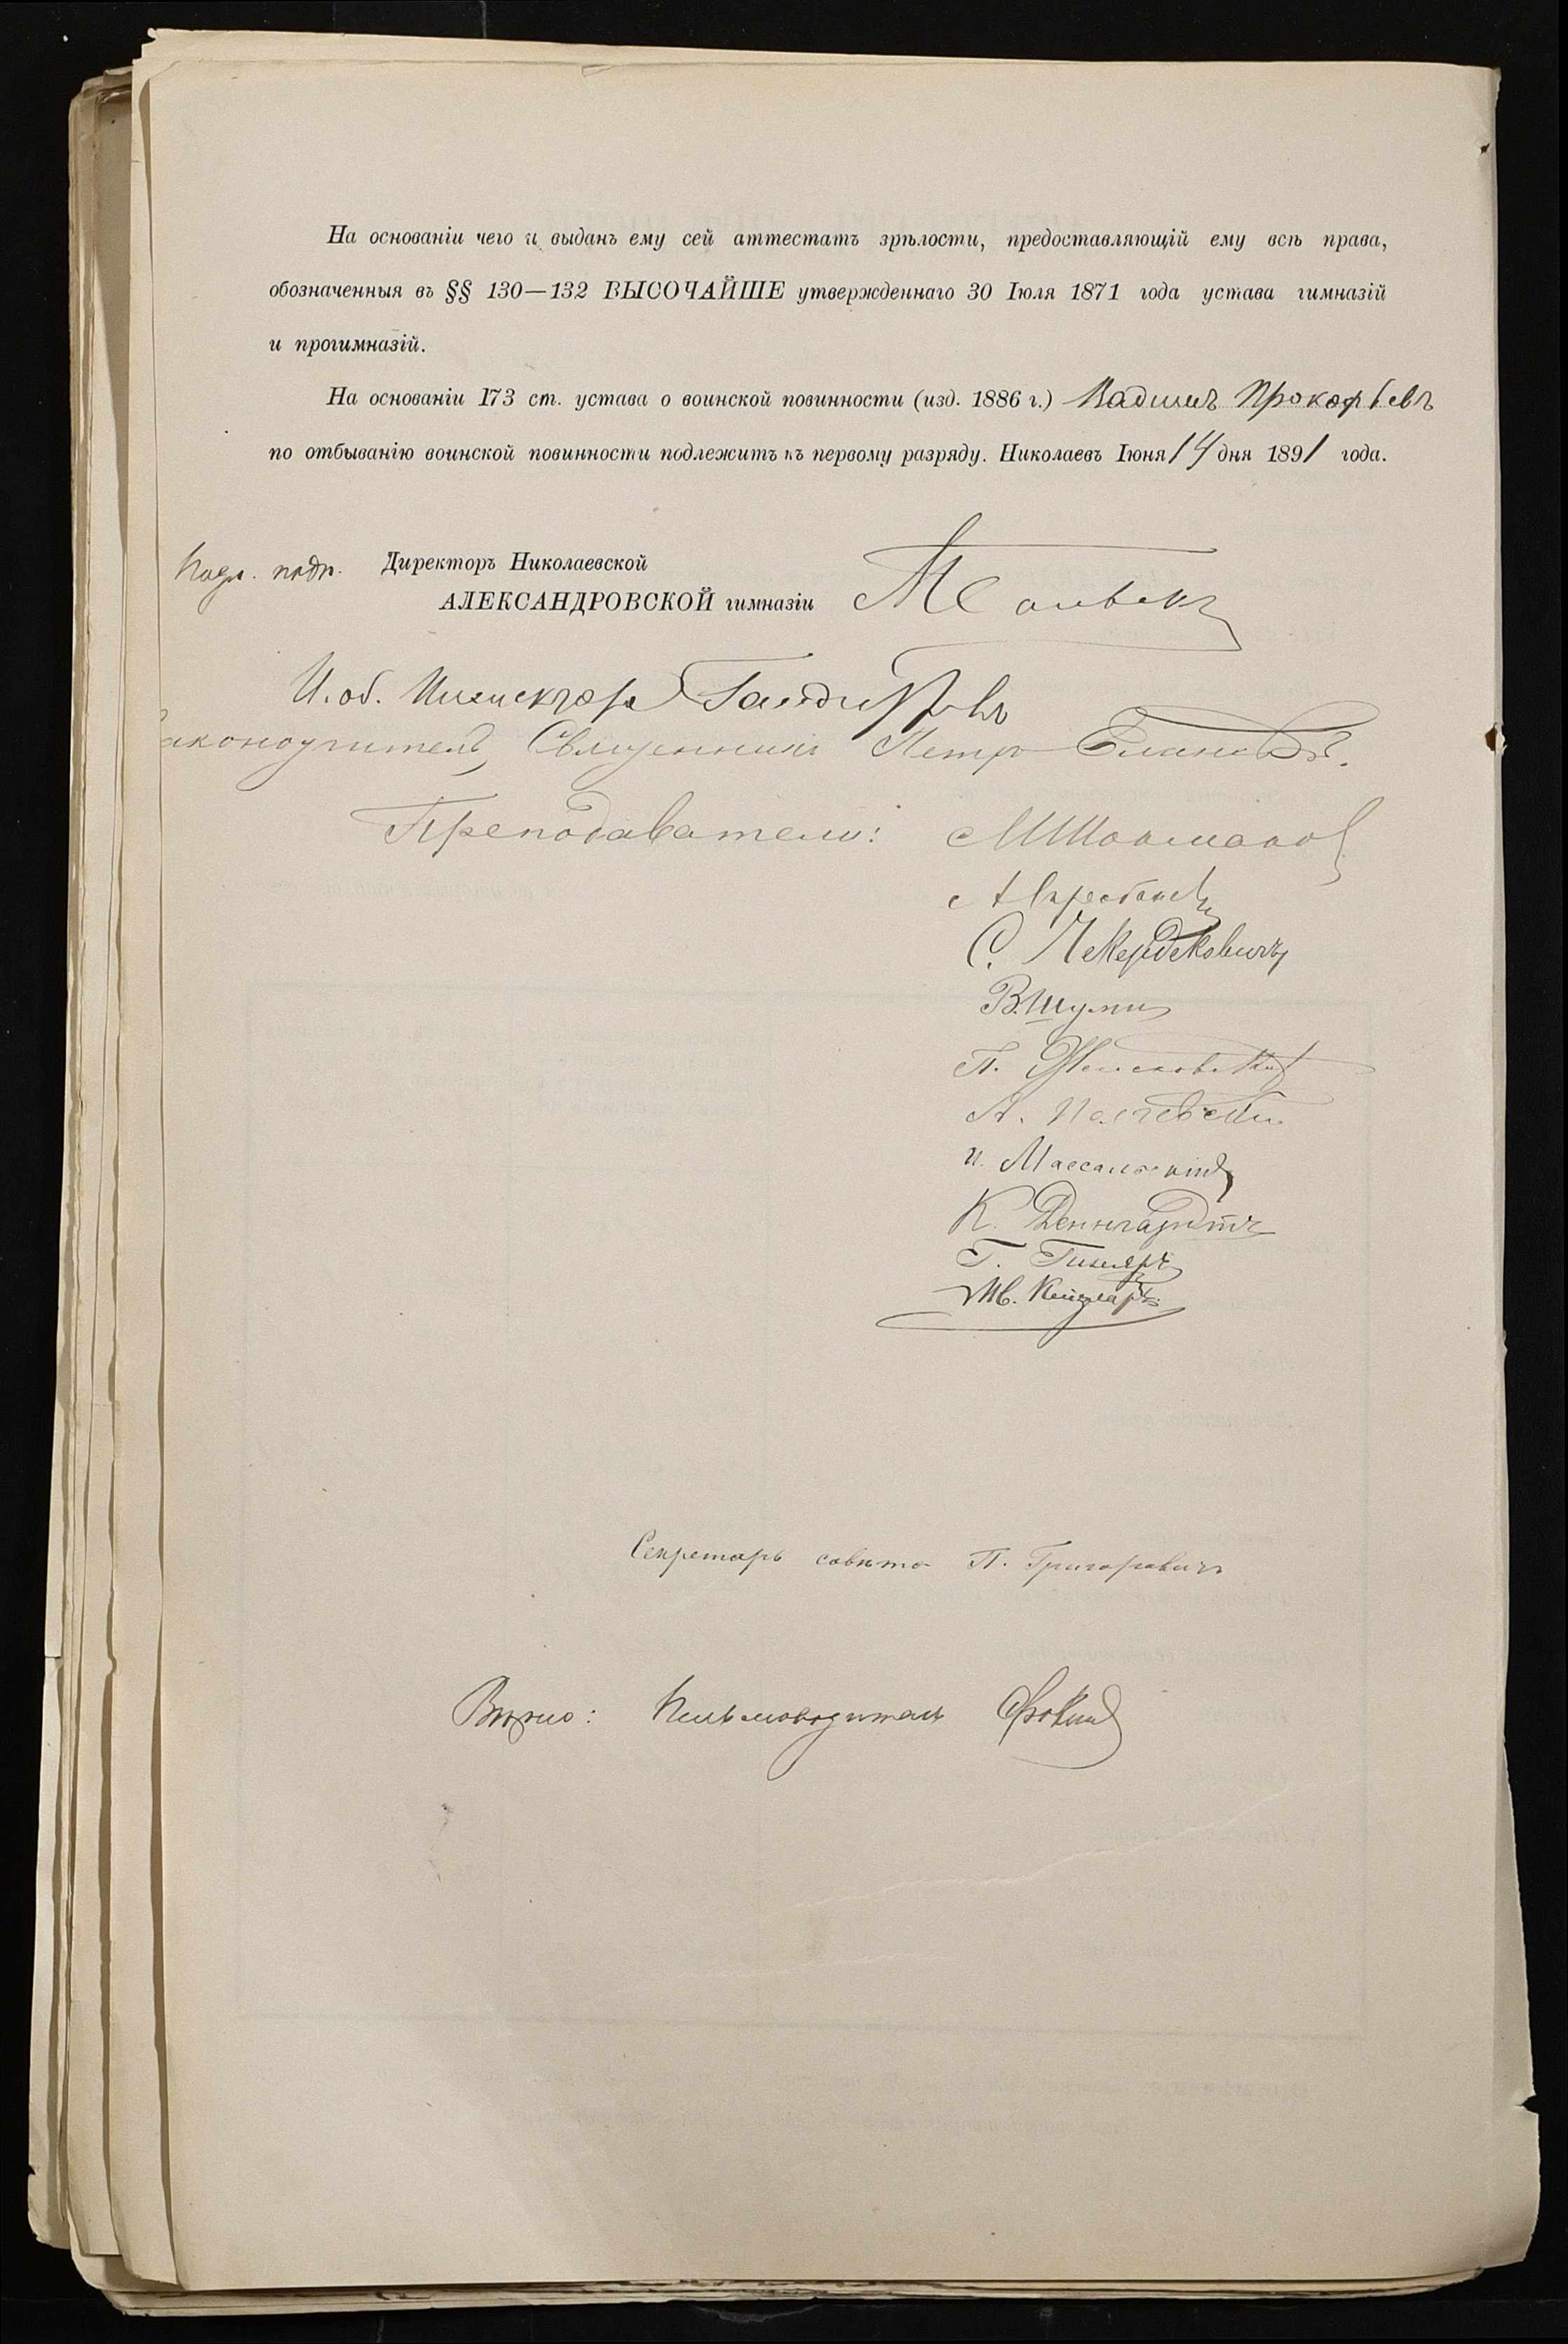 На основаніи чего и выданъ ему сей аттестатъ зрѣлости, предоставляющій ему всѣ права,
обозначенныя въ §§ 130—132 ВЫСОЧАЙШЕ утвержденнаго 30 Іюля 1871 года устава гимназій
и прогимназій.
На основаніи 173 ст. устава о воинской повинности (изд. 1886 г.) Вадимъ Прокофьевъ
по отбыванію воинской повинности подлежитъ къ первому разряду. Николаевъ Іюня 14 дня 1891 года.
Подл. подп. Директоръ Николаевской
АЛЕКСАНДРОВСКОЙ гимназіи
И. об. Инспектора
аконоучитель, Священникъ Петръ Еланскій.
Преподаватели:
С. Чекердековичъ
В. Шуминъ
П.
А.
И. Массальскій
К. Деннгардтъ
Г. Гиммеръ
Ив. Кейзларъ
Секретарь совѣта П. Григоровичъ
Вѣрно: Письмоводитель